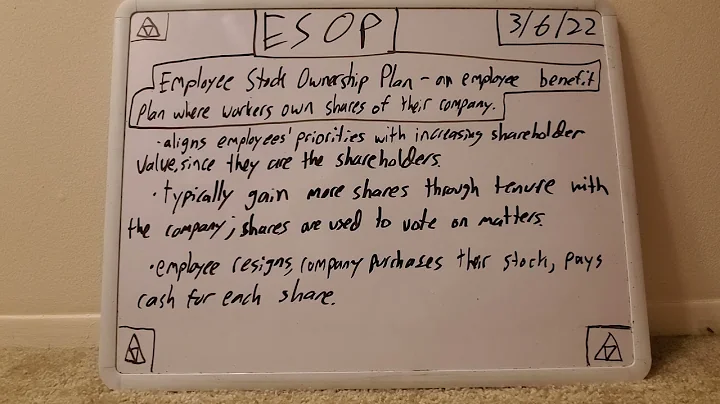 ESOP
3/6/22
Employee Stock Ownership Plan - an employee benefit
plan where workers own shares of their company.
·aligns employees' priorities with increasing shareholder
value, since they are the shareholders.
·typically gain more shares through tenure with
the company; shares are used to vote on matters.
·employee resigns, company purchases their stock, pays
cash for each share.